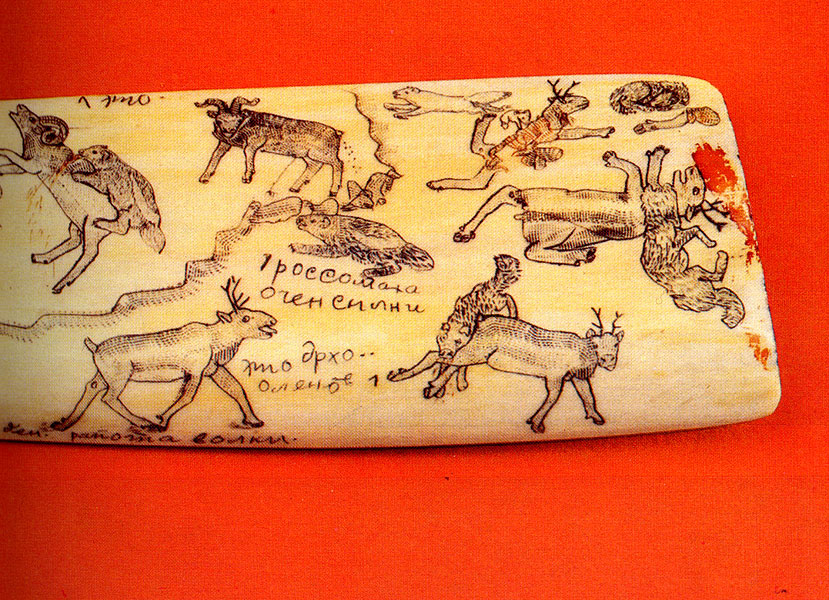 1 это.
1 россомаха
очен силни
это
оленов 1
работа волки.